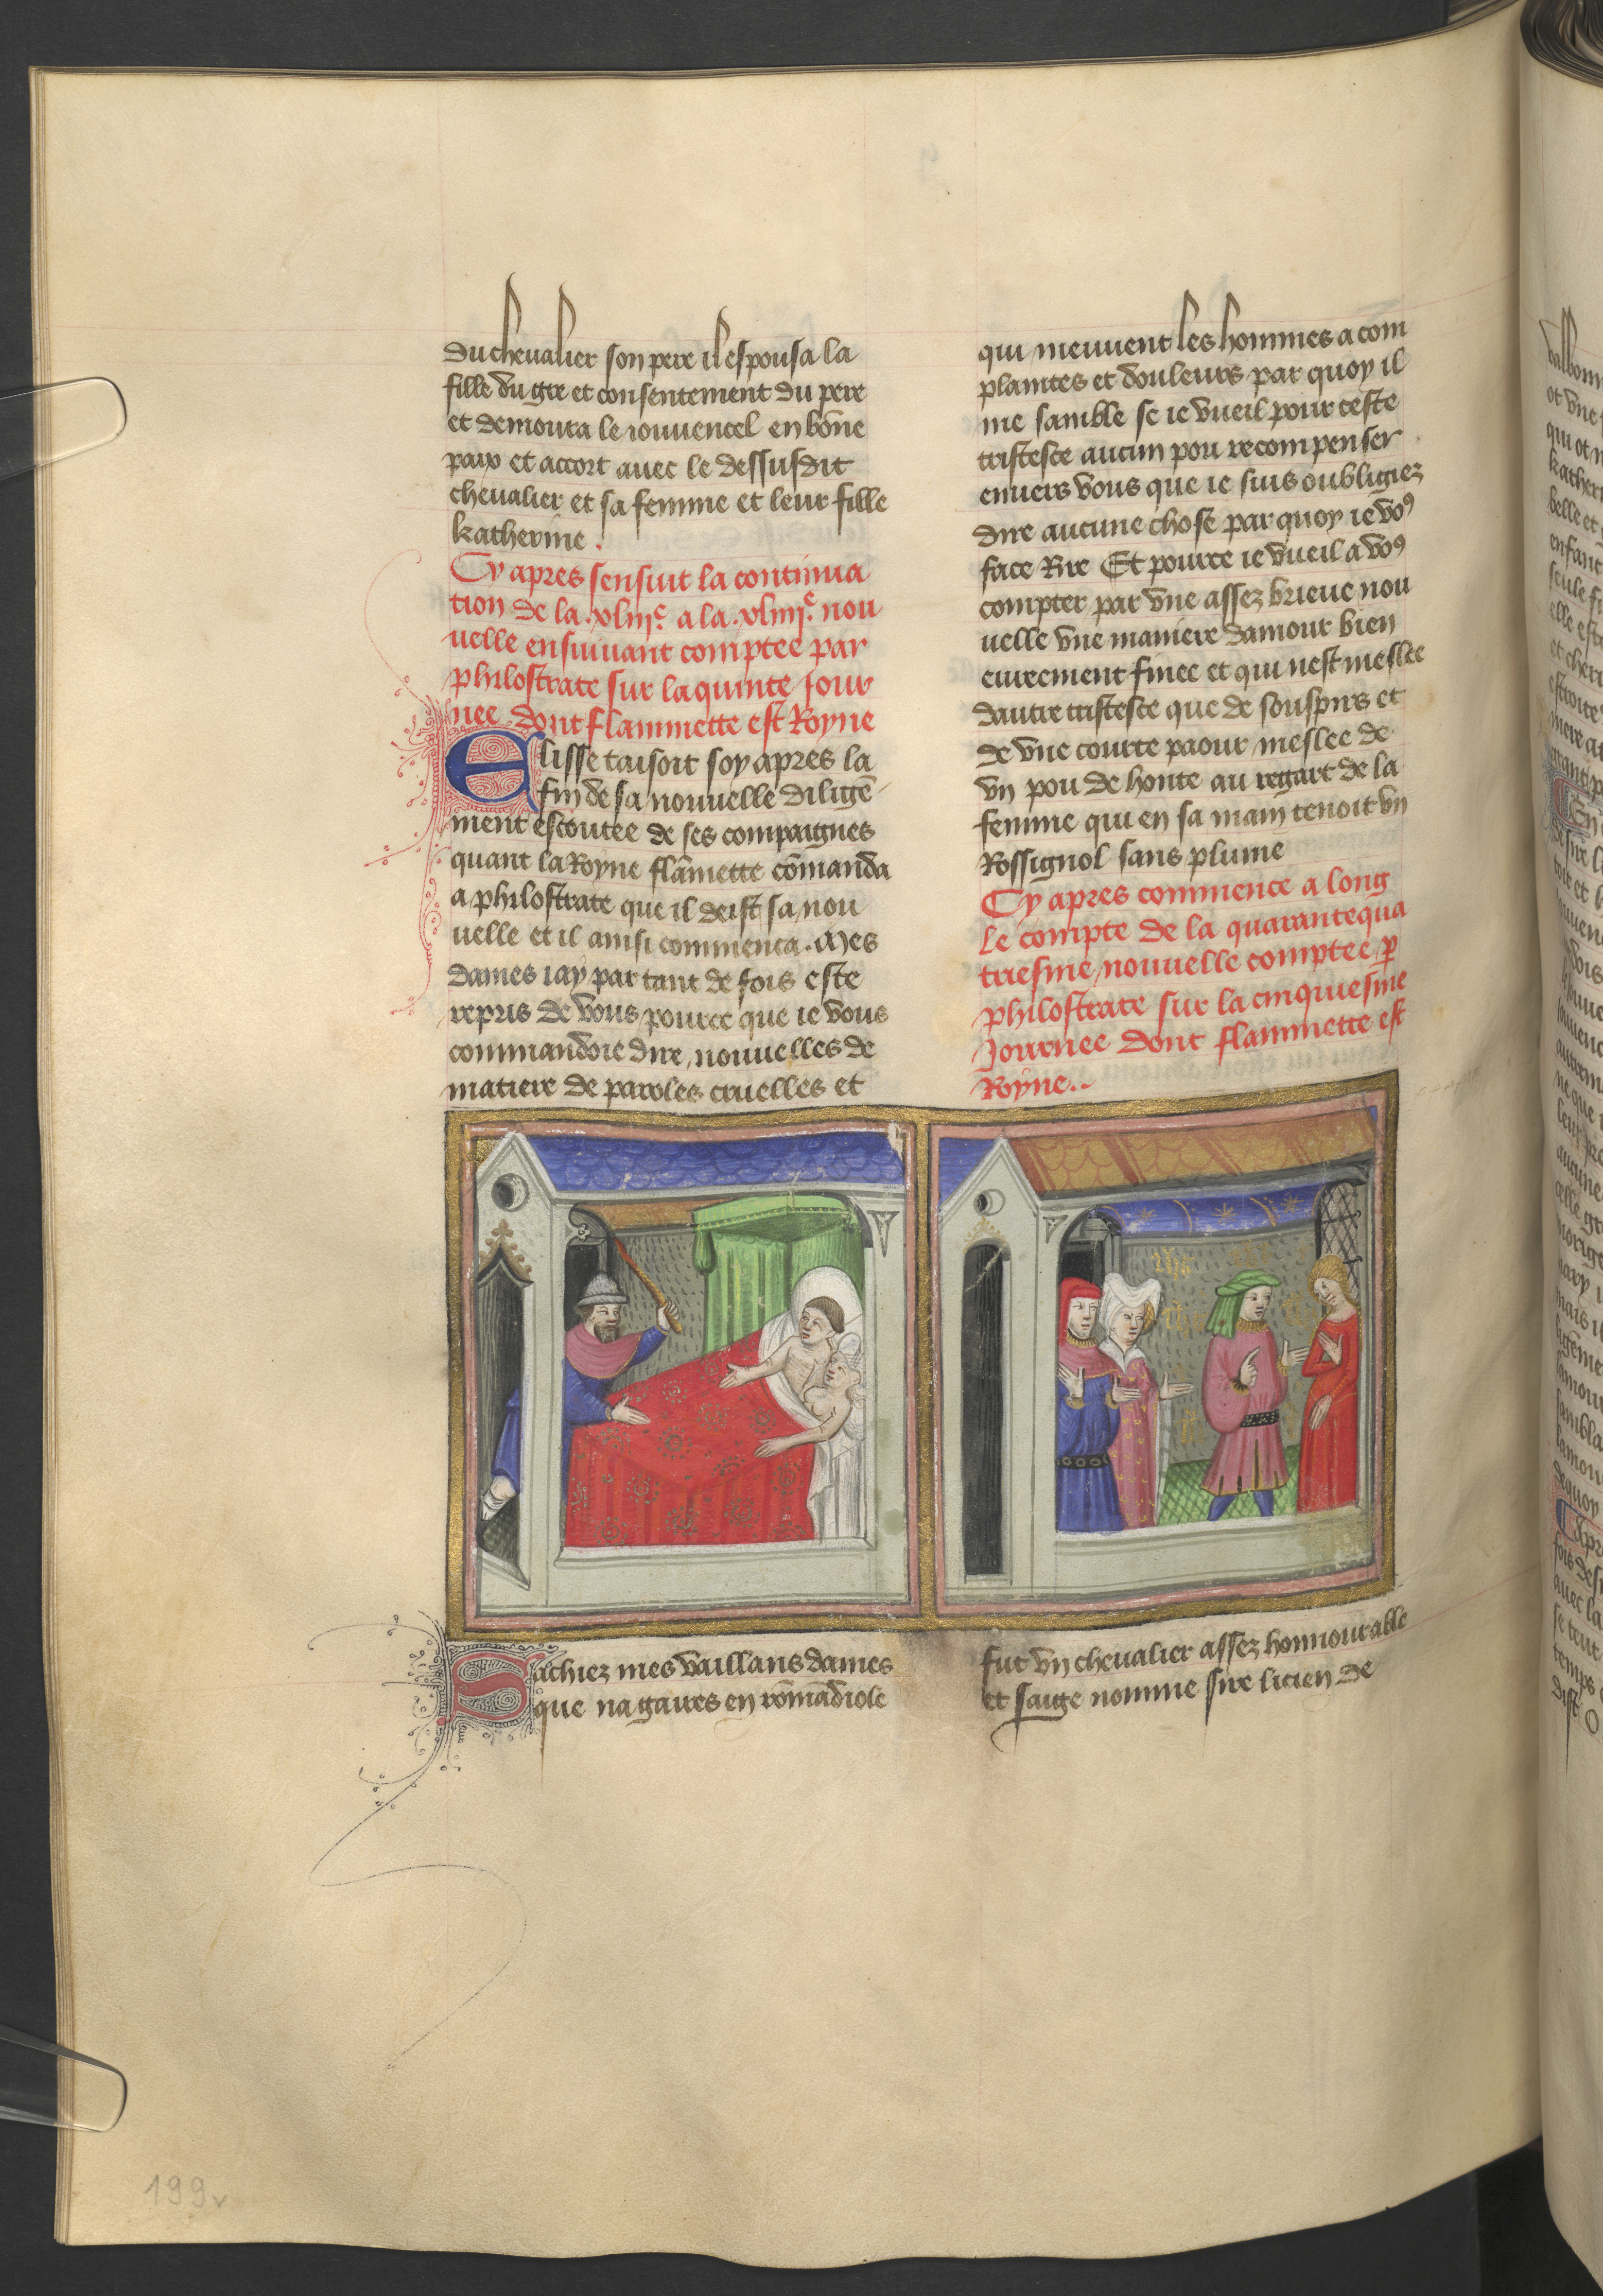 du chevalier son pere il espousa la
fille du gre et consentement du pere
et demoura le jouvencel en bōne
paix et accort avec le dessusdit
chevalier et sa femme et leur fille
katherine.
Cy apres sensuit la continua
tion de la .xliiiᵉ. a la .xliiiiᵉ. nou
uelle ensuivant comptee par
philostrate sur la quinte jour
nee dont flammette est Royne
Elisse taisoit soy apres la
fin de sa nouvelle diligē
ment escoutee de ses compaignes
quant la Royne flāmette cōmanda
a philostrate que il deist sa nou
uelle et il ainsi commenca. Mes
dames iay par tant de fois este
repris de vous pource que ie vous
commandoie dire nouvelles de
matiere de paroles cruelles et
qui meuvent les hommes a com
plaintes et douleurs par quoy il
me samble se ie vueil pour ceste
tristesce aucun pou recompenser
envers vous que ie suis oubligiez
dire aucune chose par quoy ie voꝰ
face Rire Et pource ie vueil a voꝰ
compter par vne assez brieve nou
uelle vne maniere damour bien
eurement finee et qui nest meslee
dautre tristesce que de souspirs et
de vne courte paour meslee de
vn pou de honte au regart de la
femme qui en sa main tenoit vn
Rossignol sans plume
Cy apres commence a long
le compte de la quarantequa
triesme nouvelle comptee p̲
philostrate sur la cinquiesme
Journee dont flammette est
Royne..
Sachiez mes vaillans dames
que na gaires en rōmādiole
fut vn chevalier assez honnourable
et saige nomme sire licien de
199v